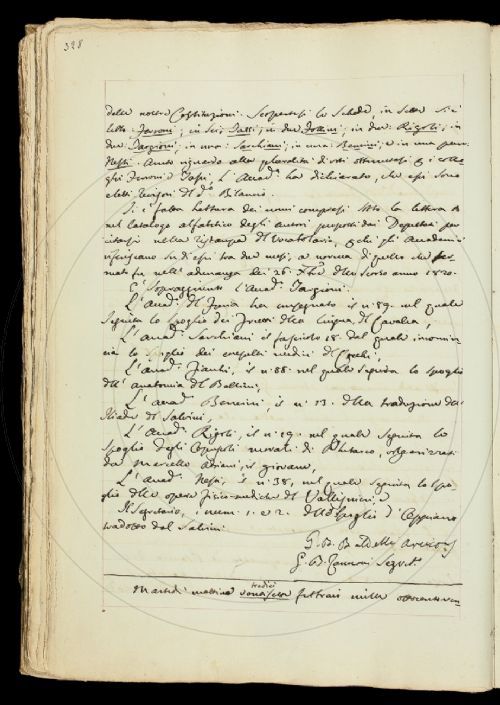 328
delle nostre Costituzioni. Scopertesi le Schede, in sette si è
letto Ferroni; in sei, Sassi; in due Follini; in due Rigoli; in
due Targioni; in una Sarchiani; in una Bencini, e in una pure
Nesti. Avuto riguardo alla pluralità di voti ottenuti i colle
ghi Ferroni e Sassi, l'Arcid. ha dichiarato, che essi sono
eletti Censori del do. Bilancio.
Si è fatta lettura dei nomi compresi sotto la lettera A
nel Catalogo alfabetico degli autori proposti dai Deputati per
citarsi nella ristampa del Vocabolario, e che gli Accademici
riferiscano su di essi tra due mesi, a norma di quello che fer
mato fu nell'adunanza dei 26. Xbre dello scorso anno 1820.
È sopraggiunto l'Accad. Targioni.
L'Accad. del Furia ha consegnato il n. 89. nel quale
seguita lo spoglio dei Frutti della lingua del Cavalca,
L'Accad. Sarchiani il fascicolo 18. dal quale incomin
cia lo spoglio dei consulti medici del Cocchi,
L'Accad. Fiacchi, il n. 88. nel quale seguita lo spoglio
dell'anatomia del Bellini,
L'Accad. Bencini, il n. 13. della traduzione dell'
Iliade del Salvini,
L'Accad. Rigoli, il n. 19. nel quale seguita lo
spoglio degli Opuscoli morali di Plutarco, volgarizzati
da Marcello Adriani, il giovane,
L'Accad. Nesti, il n. 38, nel quale seguita lo spo-
glio delle opere fisico-mediche del Vallisnieri, e
Il Segretario, i num. 1. e 2. dello spoglio d'Oppiano
tradotto dal Salvini.
G. B. Baldelli Arcicons.
G. B. Zannoni Segret.
tredici
Martedì mattina ventisette febbraio mille ottocentoven